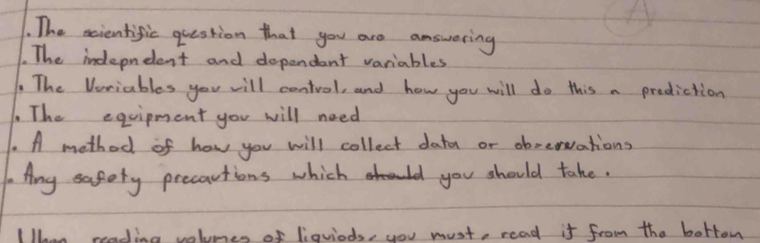 . The scientific question that you are answering
. The indepndent and dependant variables
. The Variables you will control, and how you will do this a prediction
. The equipment you will need
. A method of how you will collect data or observations
. Any safety precautions which should you should take.
When reading volumes of liquiods, you must, read it from the bottom